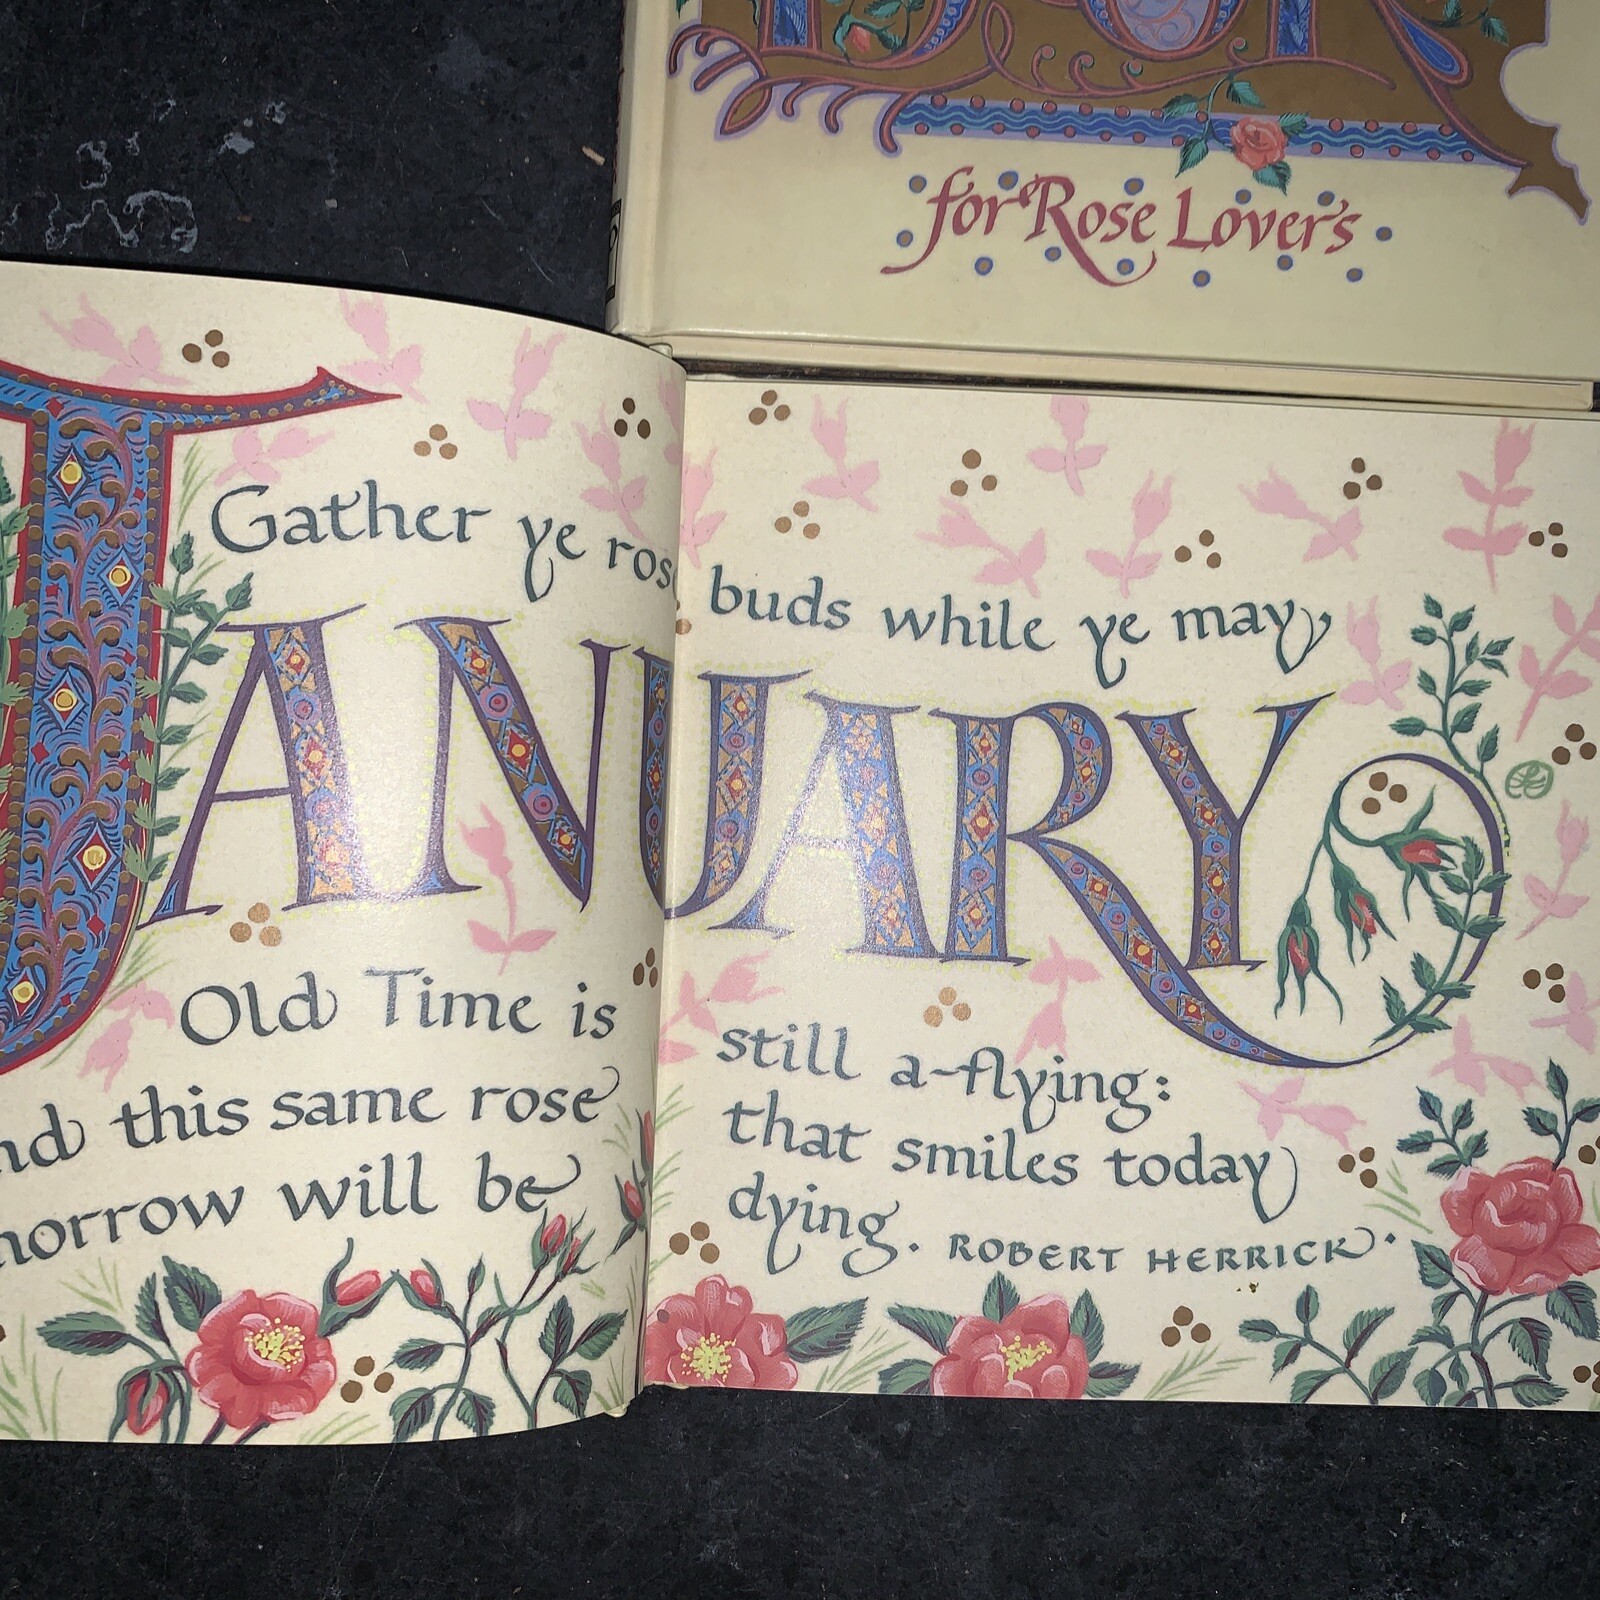 for Rose Lovers
Gather ye rose buds while ye may,
JANUARY
Old Time is still a-flying:
this same rose that smiles today
will be dying. ROBERT HERRICK.